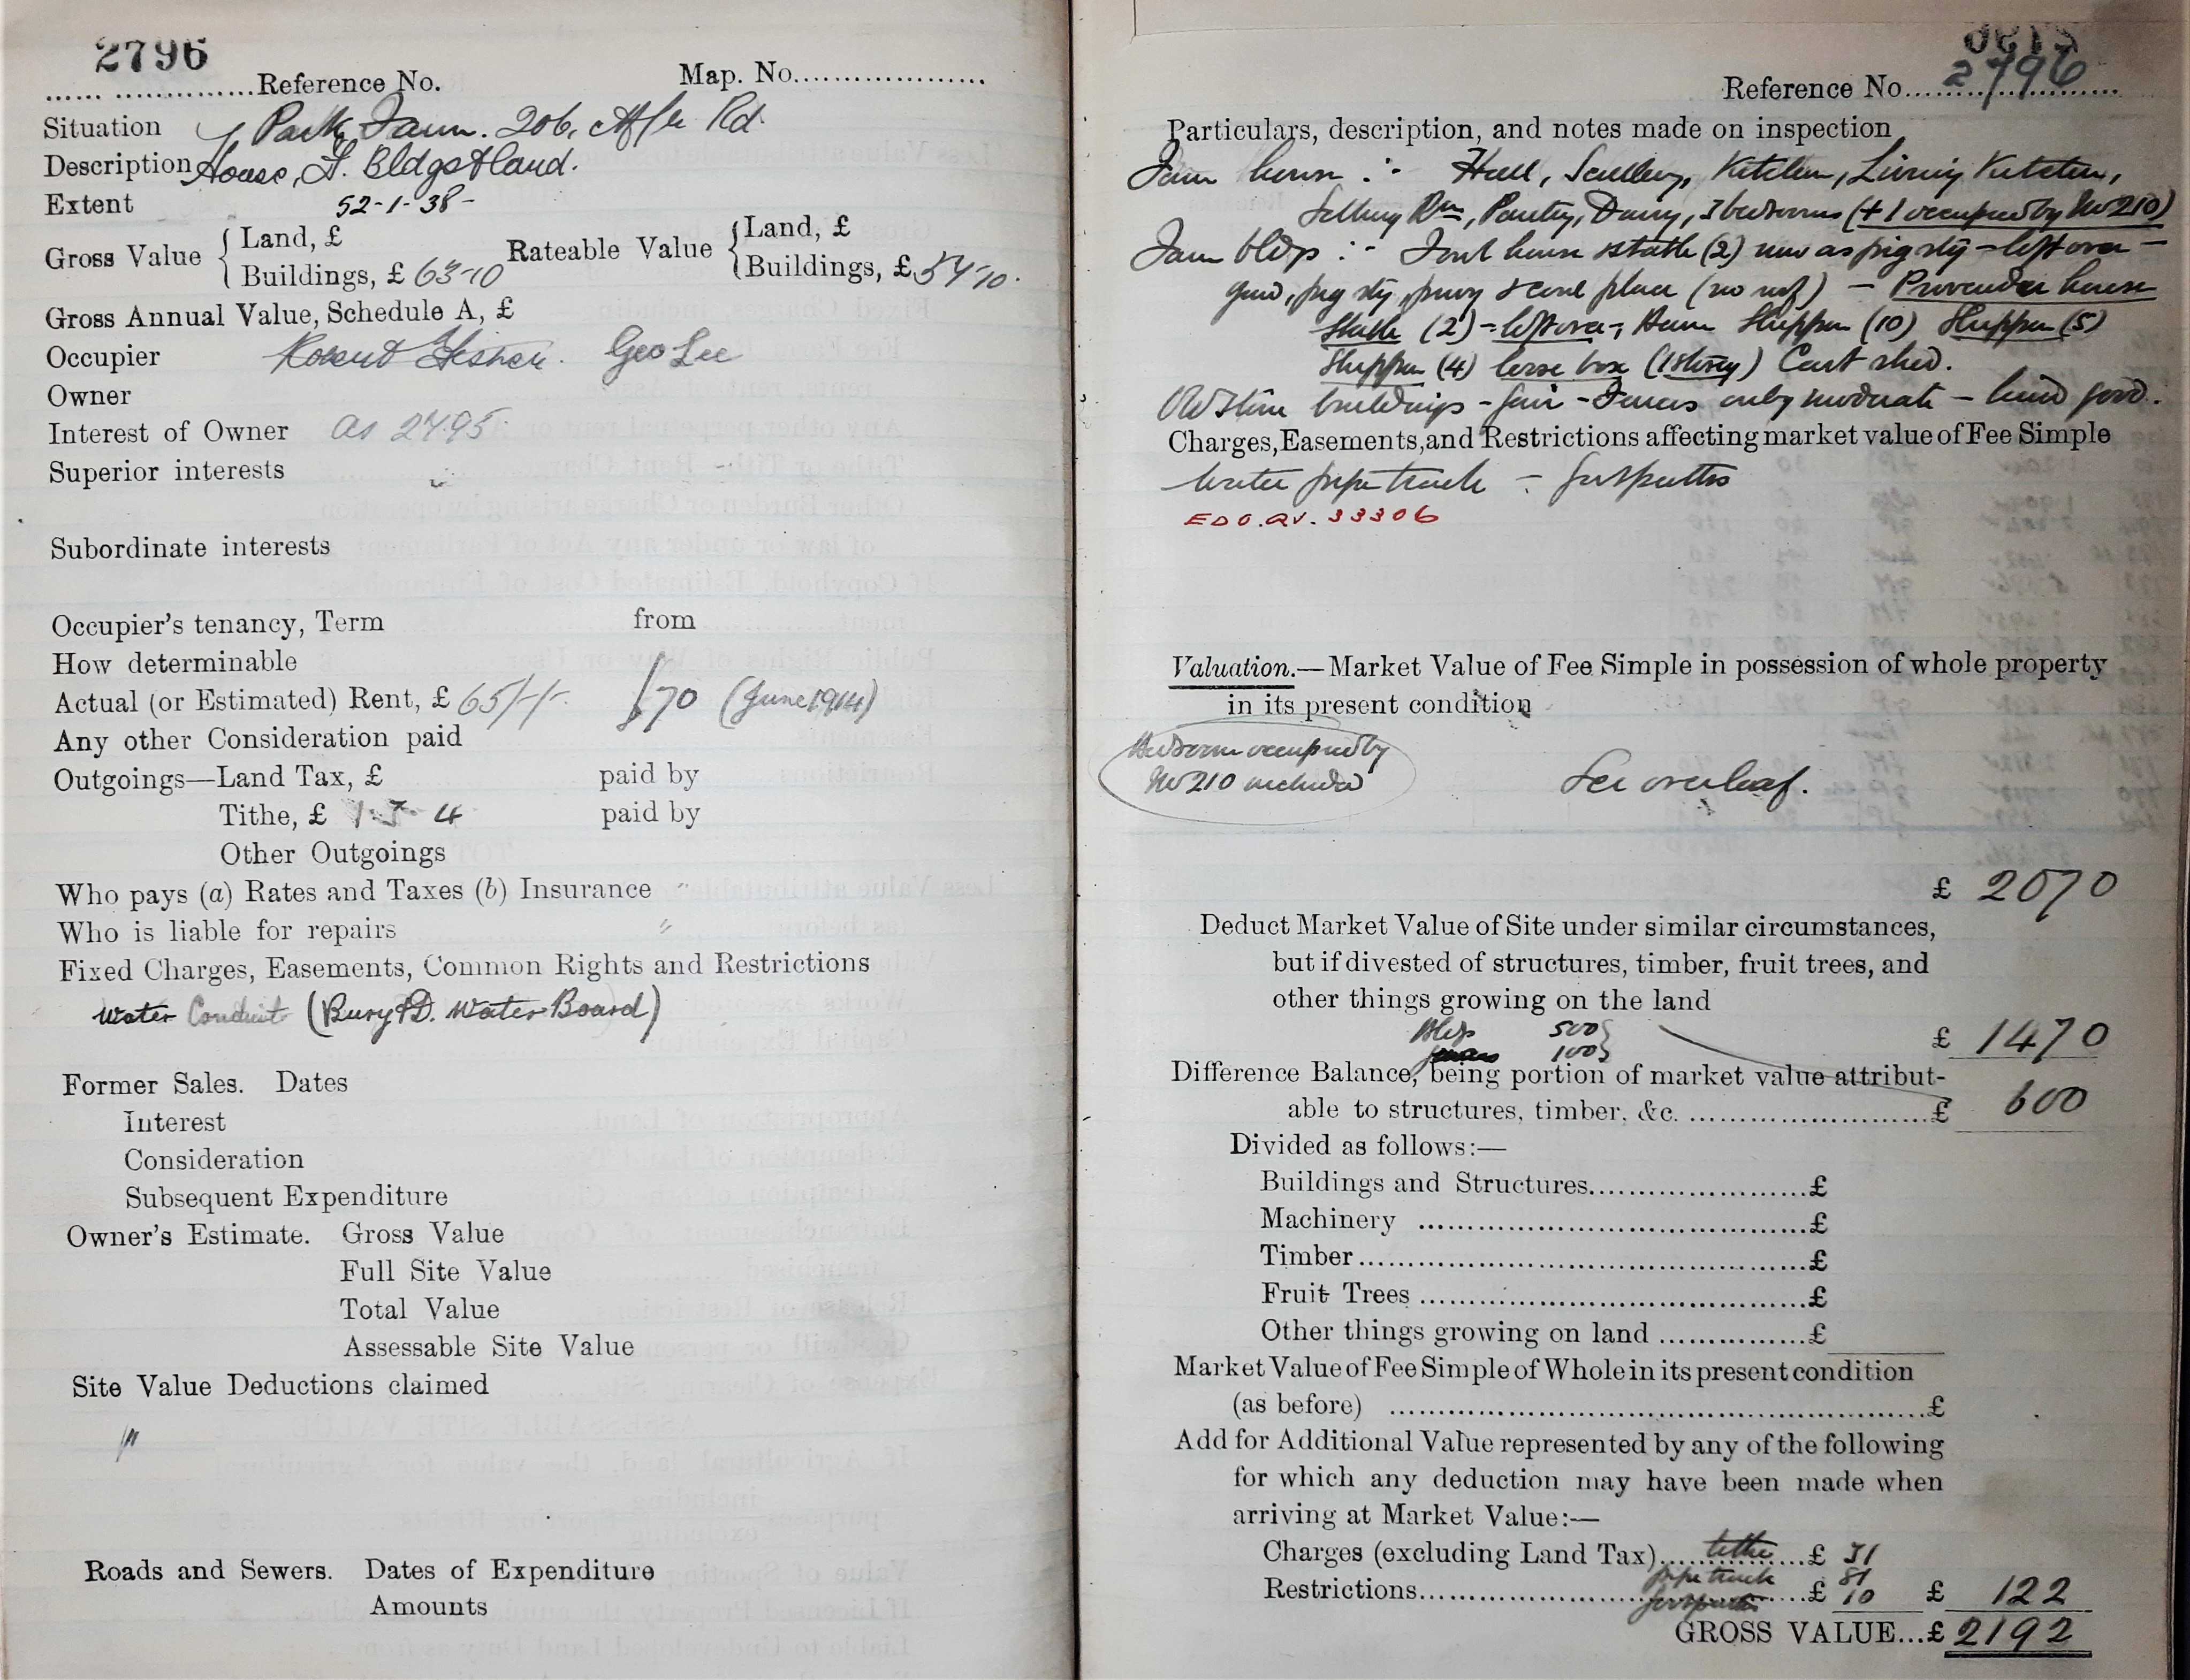 2796
Reference No. Map. No.
Situation Park Farm. 206, Rd.
Description House, F. Bldgs & land.
Extent 52-1-38-
Gross Value { Land, £ Rateable Value { Land, £
Buildings, £ 63-10 Buildings, £ 54-10.
Gross Annual Value, Schedule A, £
Occupier Robert Geo Lee
Owner
Interest of Owner as 2795
Superior interests
Subordinate interests
Occupier's tenancy, Term from
How determinable
Actual (or Estimated) Rent, £ 65/-/-. £70 (June 1914)
Any other Consideration paid
Outgoings—Land Tax, £ paid by
Tithe, £ 4 paid by
Other Outgoings
Who pays (a) Rates and Taxes (b) Insurance "
Who is liable for repairs "
Fixed Charges, Easements, Common Rights and Restrictions
Water Conduit (Bury & D. Water Board)
Former Sales. Dates
Interest
Consideration
Subsequent Expenditure
Owner's Estimate. Gross Value
Full Site Value
Total Value
Assessable Site Value
Site Value Deductions claimed
Roads and Sewers. Dates of Expenditure
Amounts
Reference No. 2796
Particulars, description, and notes made on inspection
Farm house :- Hall, Scullery, Kitchen, Living Kitchen,
Sitting Rm, Pantry, Dairy, 3 bedrooms (+ 1 occupied by No 210)
Farm bldgs :- Fowl house & stable (2) now as pig sty - loft over -
pig sty, privy & coal place (no roof) - Provender house
Stable (2) - loft over -, Barn Shippon (10) Shippon (5)
Shippon (4) loose box (1 storey) Cart shed.
Old stone buildings - fair - Fences only moderate - land good.
Charges, Easements, and Restrictions affecting market value of Fee Simple
Water pipe track - footpaths
EDO. av. 33306
Valuation.—Market Value of Fee Simple in possession of whole property
in its present condition
Bedroom occupied by
No 210 included
See overleaf.
£ 2070
Deduct Market Value of Site under similar circumstances,
but if divested of structures, timber, fruit trees, and
other things growing on the land
Bldgs 500 } £ 1470
100 }
Difference Balance, being portion of market value attribut-
able to structures, timber, &c. £ 600
Divided as follows:—
Buildings and Structures £
Machinery £
Timber £
Fruit Trees £
Other things growing on land £
Market Value of Fee Simple of Whole in its present condition
(as before) £
Add for Additional Value represented by any of the following
for which any deduction may have been made when
arriving at Market Value:—
Charges (excluding Land Tax) tithe £ 31
pipe track 81
Restrictions footpaths £ 10 £ 122
GROSS VALUE...£ 2192